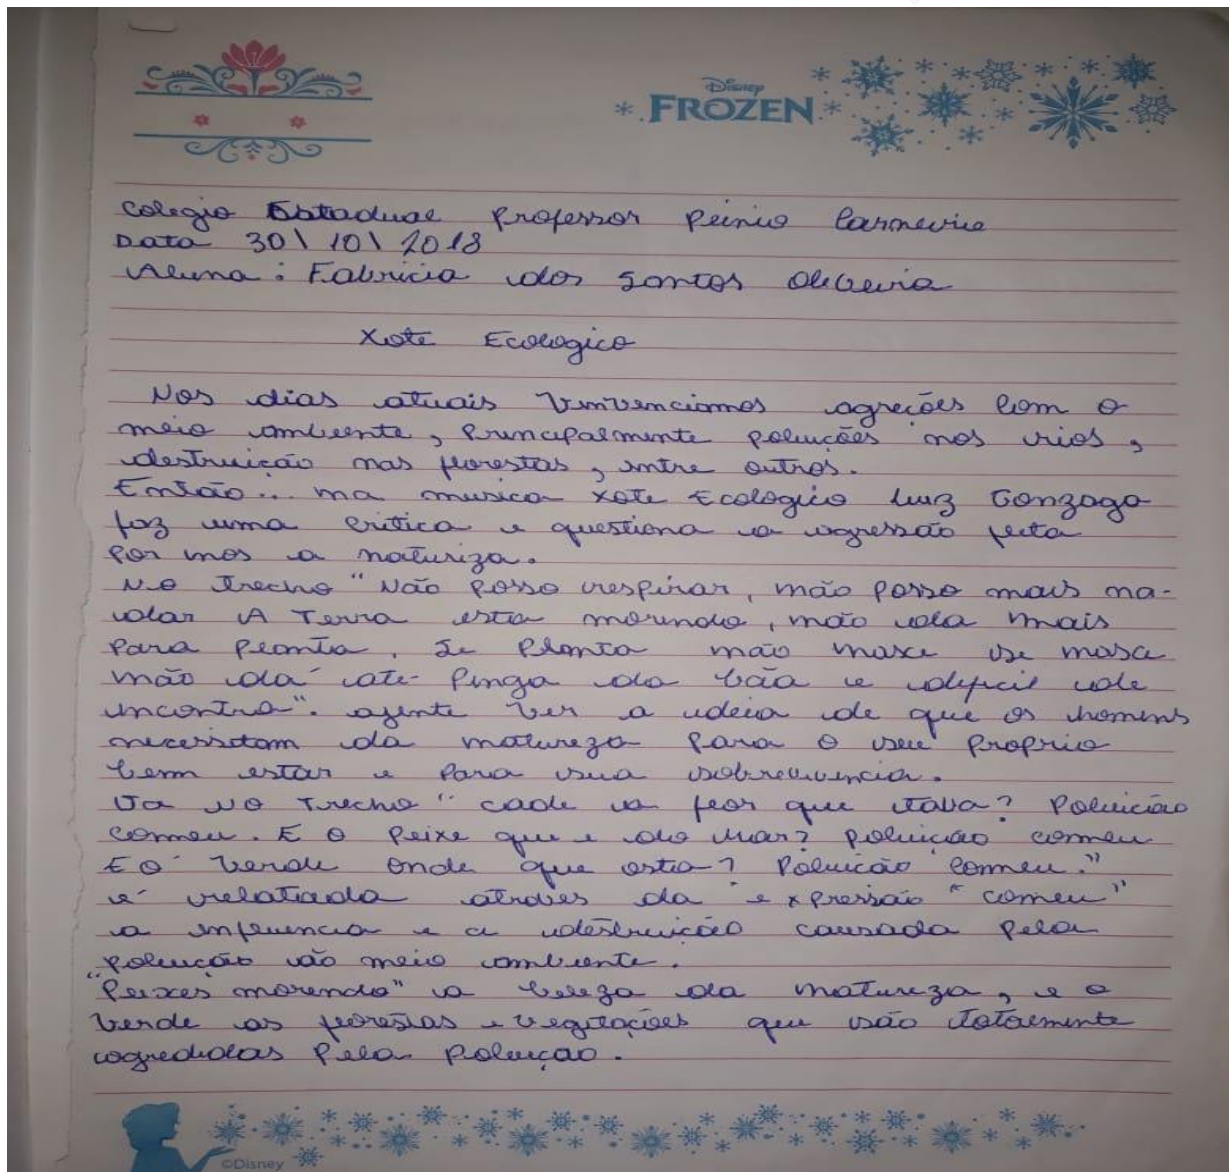 Disney
FROZEN
Colegio Estadual Professor Plinio Carneiro
Data 30\ 10\ 2018
Aluna: Fabricia dos Santos Oliveira
Xote Ecologico
Nos dias atuais vivenciamos agreções com o
meio ambiente, Principalmente poluições nos rios,
destruição nas florestas, entre outros.
Então... na musica xote Ecologico luiz Gonzaga
faz uma critica e questiona a agressão feita
Por nos a natureza.
No Trecho "Não Posso respirar, não posso mais na-
dar A Terra esta morendo, não da mais
Para Planta. Se Planta não nasce se nasce
não da até Pinga da bôa e dificil de
encontra". agente ver a ideia de que os homens
necessitam da natureza Para o seu Proprio
bem estar e Para sua sobrevivencia.
Ja no Trecho "cade a flor que tava? Poluição
comeu. E o Peixe que e do mar? Poluição comeu
E o verde onde que esta? Poluição comeu."
é relatada atraves da expressão "comeu"
a influencia e a destruição causada Pela
Poluição ao meio ambiente.
"Peixes morendo" a beleza da natureza, e o
verde as florestas e vegetações que são totalmente
agredidas Pela Poluição.
©Disney